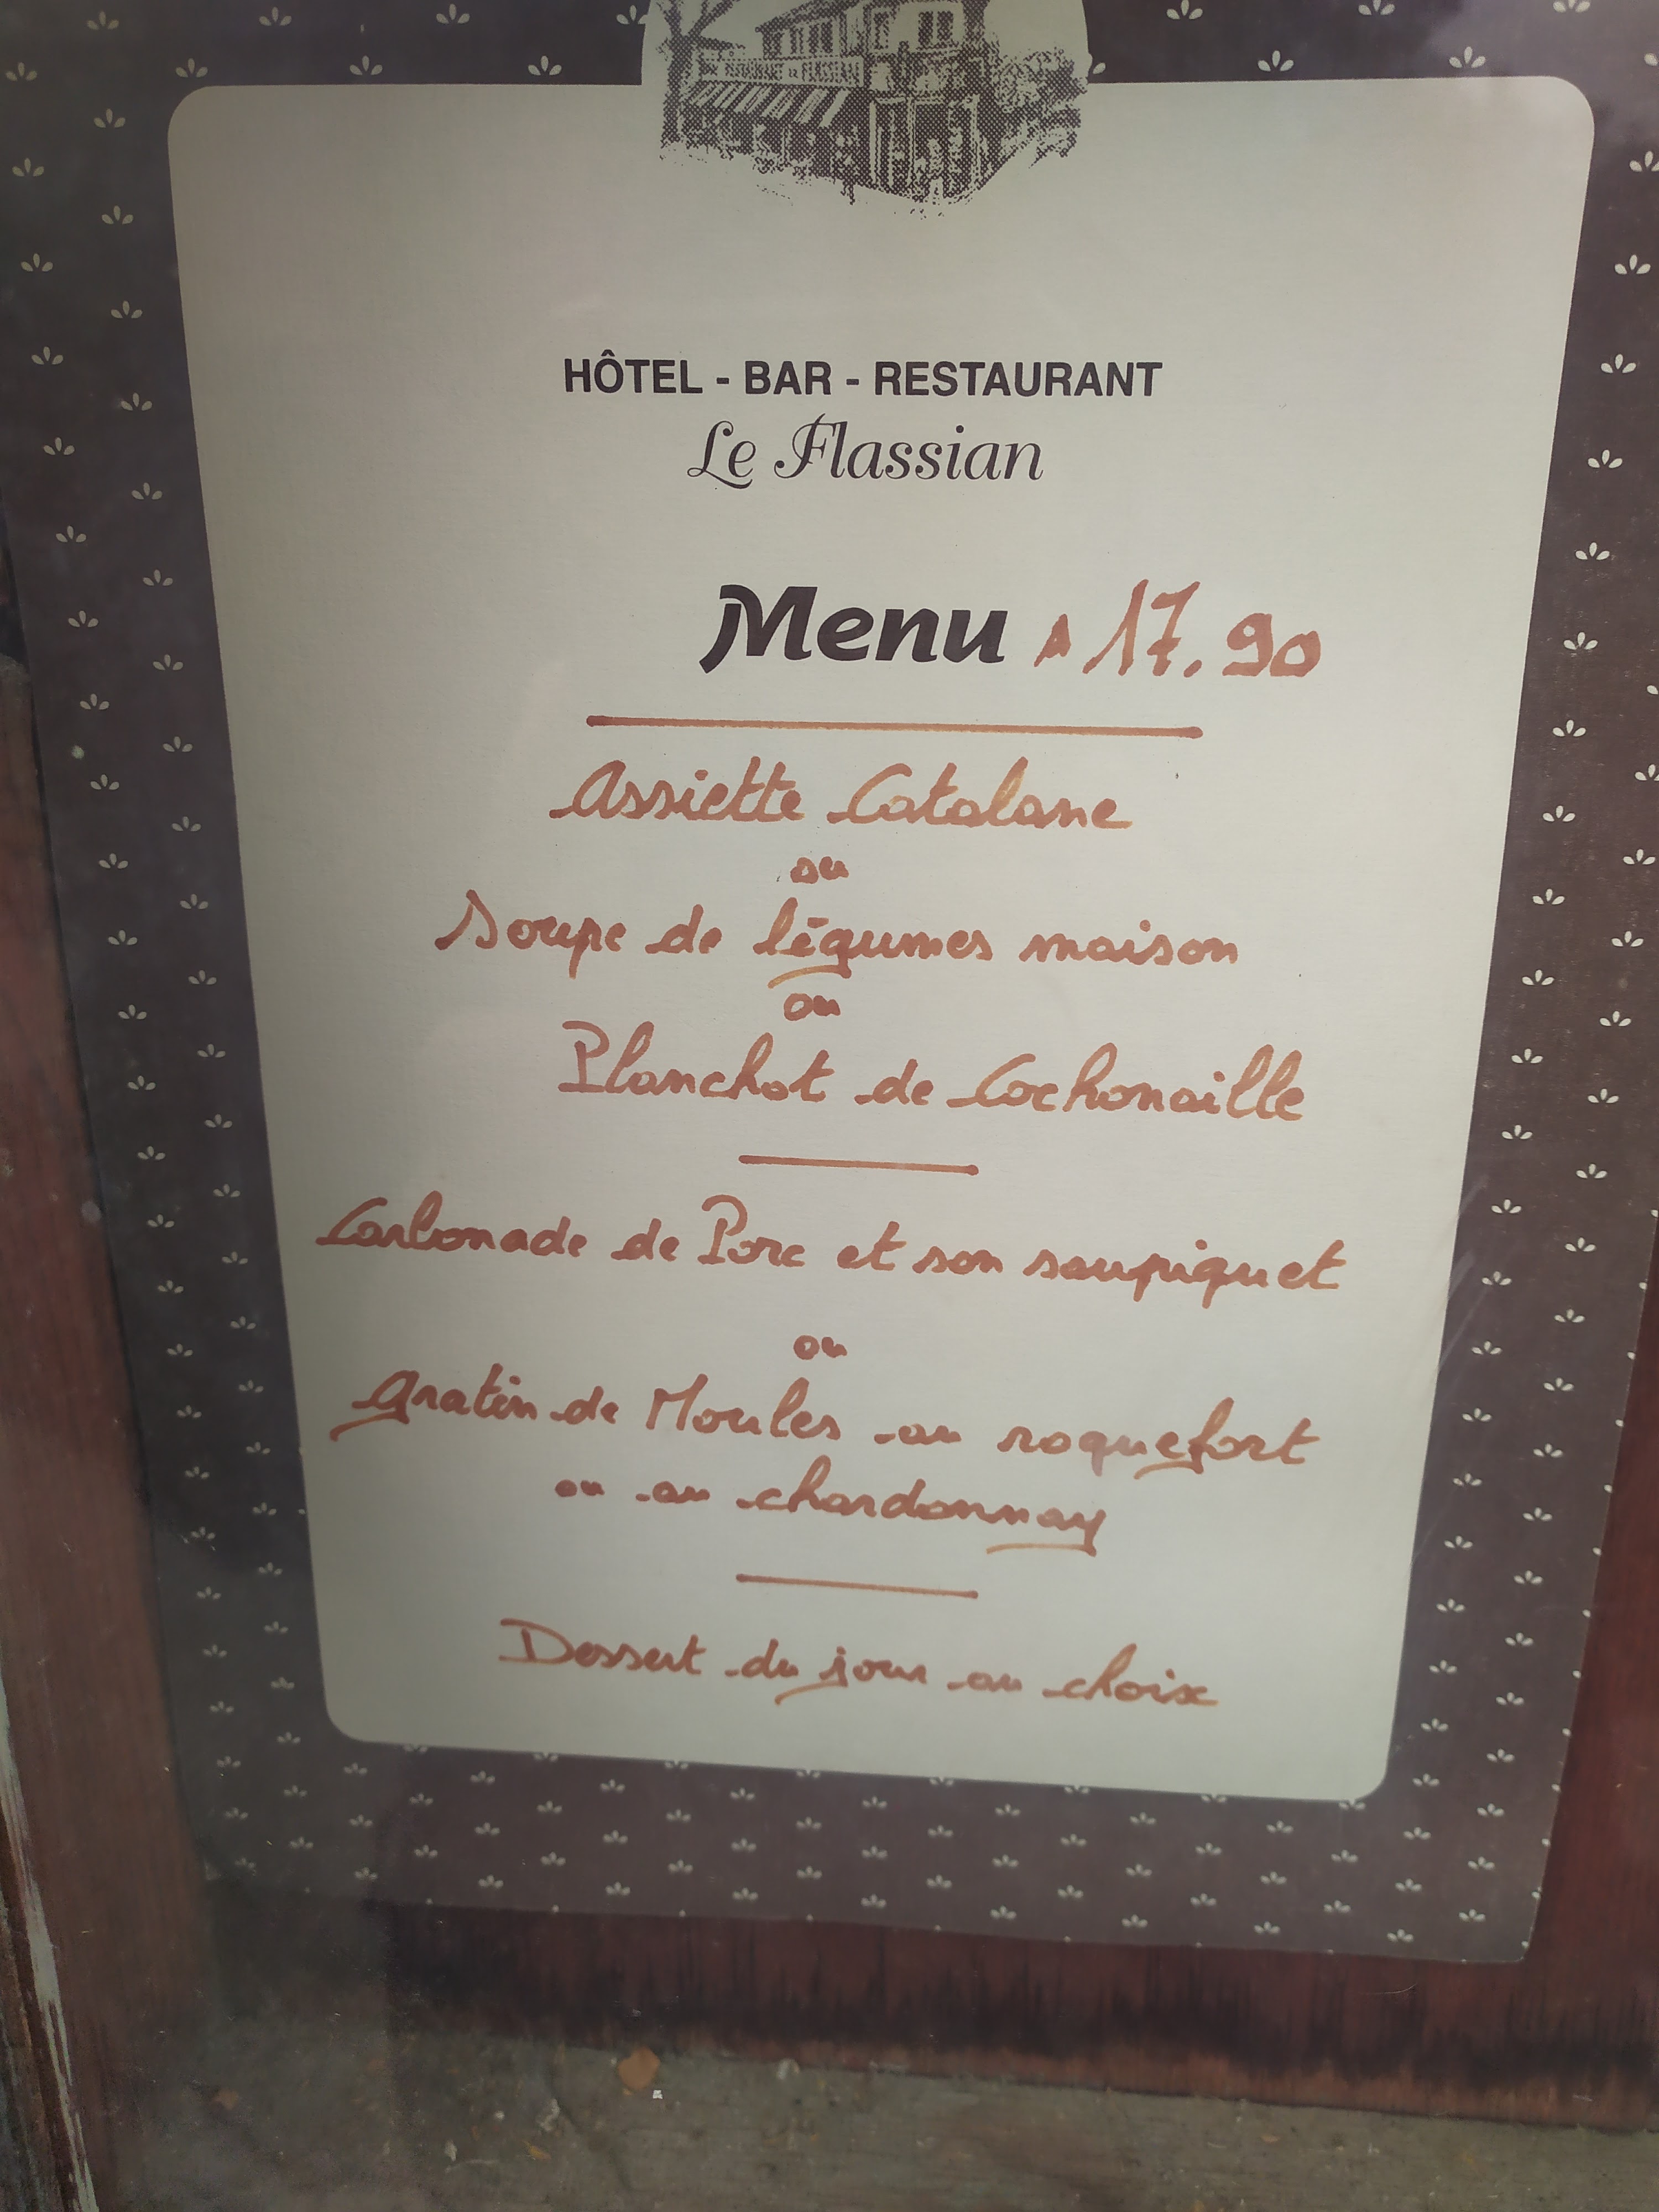 RESTAURANT LE FLASSIAN
HÔTEL - BAR - RESTAURANT
Le Flassian
Menu A 17.90
Assiette Catalane
ou
Soupe de légumes maison
ou
Planchot de Cochonaille
Carbonade de Porc et son saupiquet
ou
Gratin de Moules au roquefort
ou au chardonnay
Dessert du jour au choix